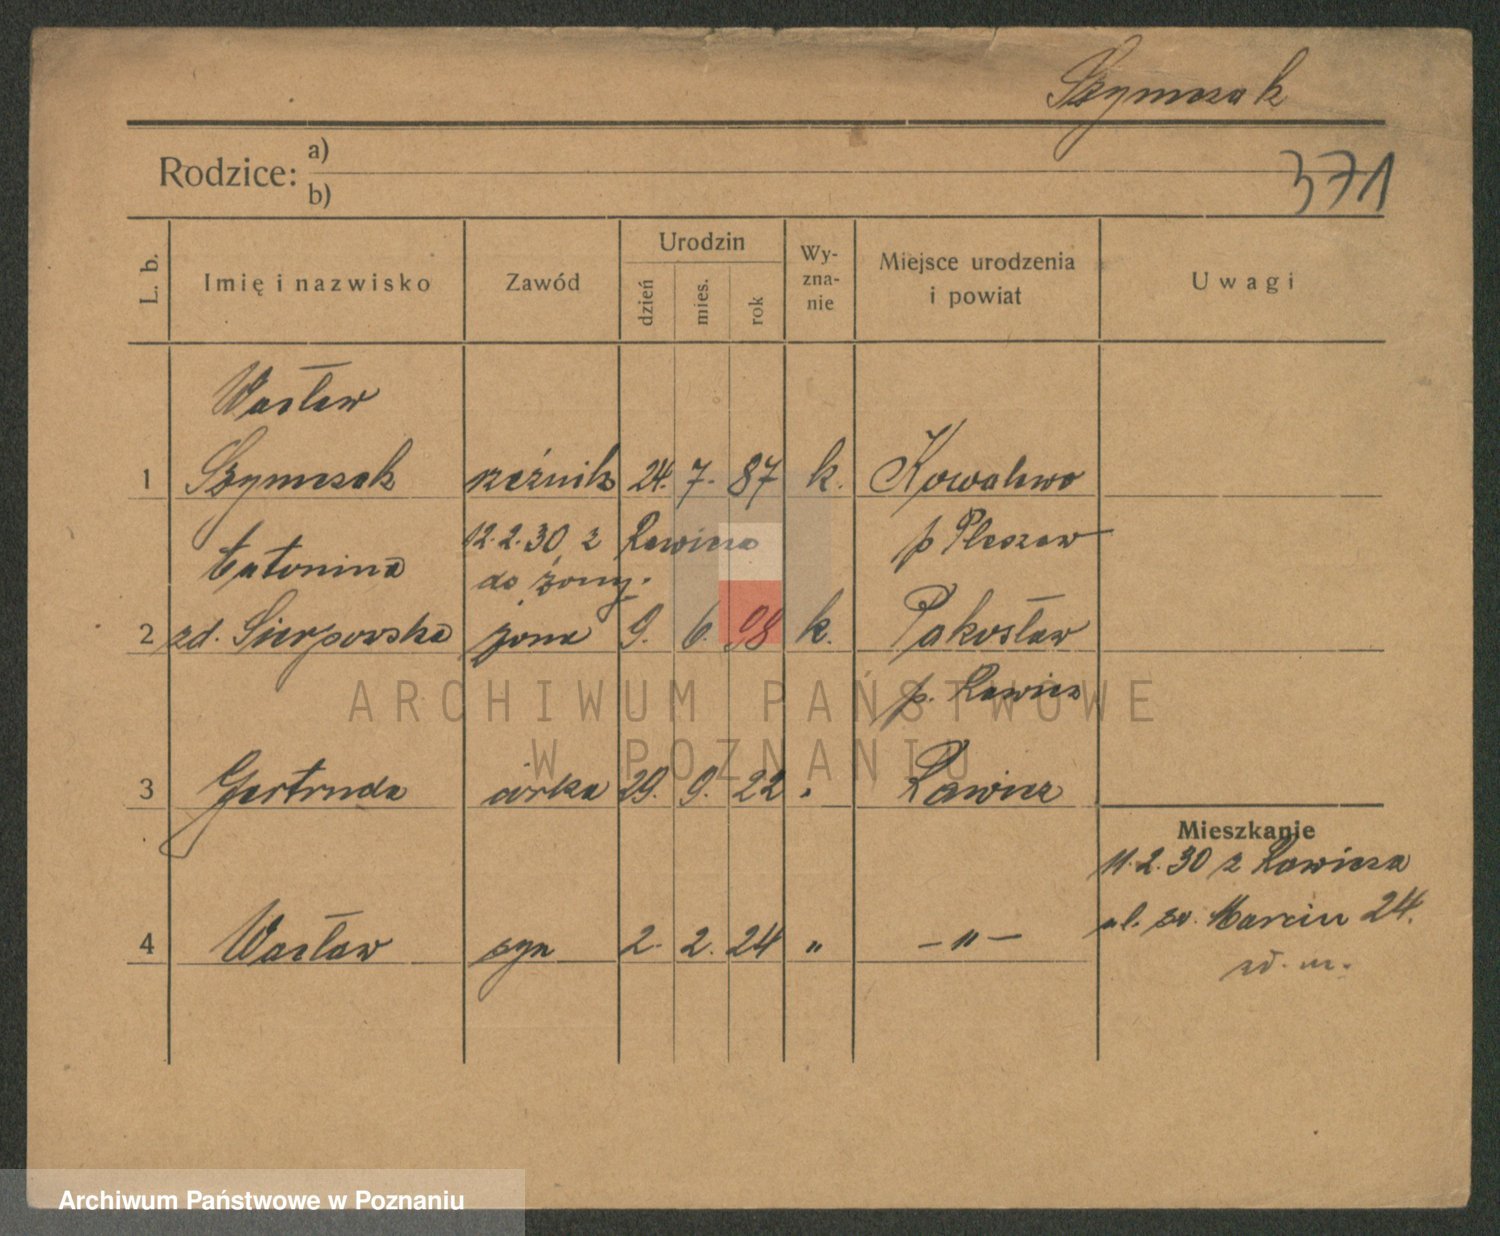 Szymczak
Rodzice: a)
b)
371
L. b.
Imię i nazwisko
Zawód
Urodzin
dzień
mies.
rok
Wy-
zna-
nie
Miejsce urodzenia
i powiat
Uwagi
Wacław
1 Szymczak rzeźnik 24. 7. 87 k. Kowalewo
12.2.30 z Rawicza p Pleszew
Antonina do żony.
2 zd. Sierpowska żona 9. 6. 98 k. Pakosław
p. Rawicz
3 Gertruda córka 29. 9. 22 " Rawicz
Mieszkanie
11.2.30 z Rawicza
ul. św. Marcin 24.
4 Wacław syn 2. 2. 24 " — " —
ARCHIWUM PAŃSTWOWE
W POZNANIU
Archiwum Państwowe w Poznaniu